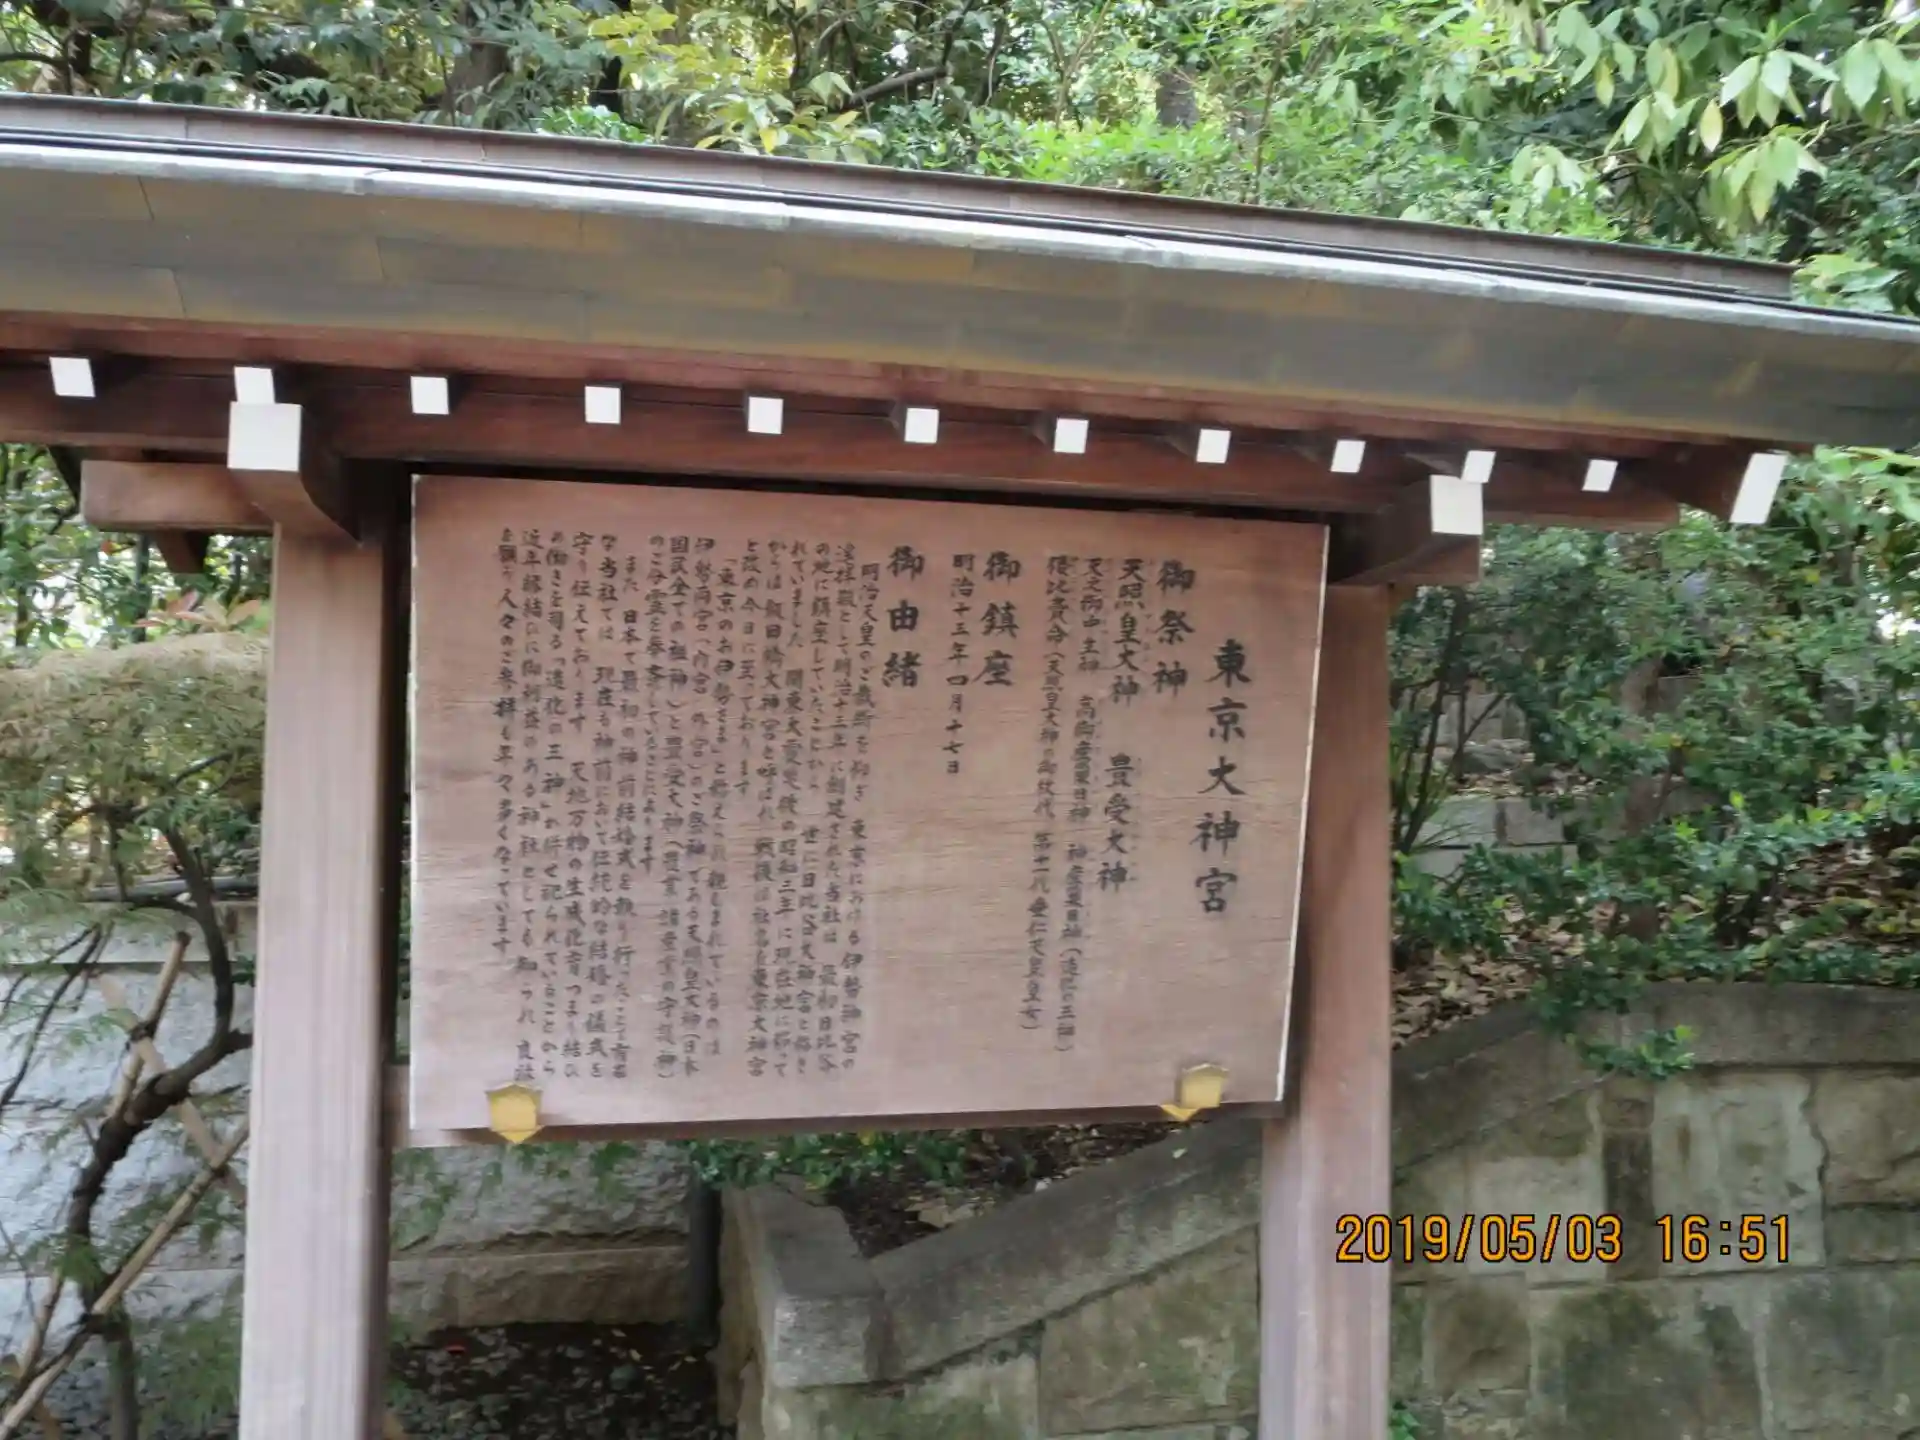 東京大神宮
御祭神
天照皇大神 豊受大神
天之御中主神 高御産巣日神 神産巣日神(造化の三神)
倭比賣命(天照皇大神の御杖代 第十一代垂仁天皇皇女)
御鎮座
明治十三年四月十七日
御由緒
明治天皇のご裁断を仰ぎ 東京における伊勢神宮の
遥拝殿として明治十三年に創建された当社は 最初日比谷
の地に鎮座していたことから 世に日比谷大神宮と称さ
れていました 関東大震災後の昭和三年に現在地に移って
からは飯田橋大神宮と呼ばれ 戦後は社名を東京大神宮
と改め今日に至っております
「東京のお伊勢さま」と称えられ親しまれているのは
伊勢両宮(内宮 外宮)のご祭神である天照皇大神(日本
国民全ての祖神)と豊受大神(農業 諸産業の守護神)
のご分霊を奉斎していることによります
また 日本で最初の神前結婚式を執り行ったことで有名
な当社では 現在も神前において伝統的な結婚の儀式を
守り伝えております 天地万物の生成化育つまり結び
の働きを司る「造化の三神」が併せ祀られていることから
近年縁結びに御利益のある神社としても知られ 良縁
を願う人々のご参拝も年々多くなっています
2019/05/03 16:51